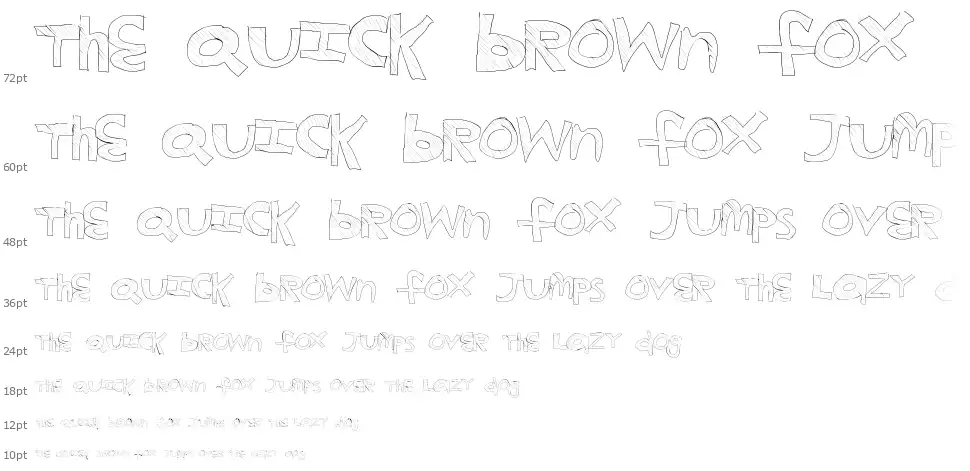 THE QUICK bROWn fOX
72pt
THE QUICK bROWn fOX JUmP
60pt
THE QUICK bROWn fOX JUmPs OVER
48pt
THE QUICK bROWn fOX JUmPs OVER THE LAZY
36pt
THE QUICK bROWn fOX JUmPs OVER THE LAZY dog
24pt
THE QUICK bROWn fOX JUmPs OVER THE LAZY dog
18pt
THE QUICK bROWn fOX JUmPs OVER THE LAZY dog
12pt
THE QUICK bROWn fOX JUmPs OVER THE LAZY dog
10pt